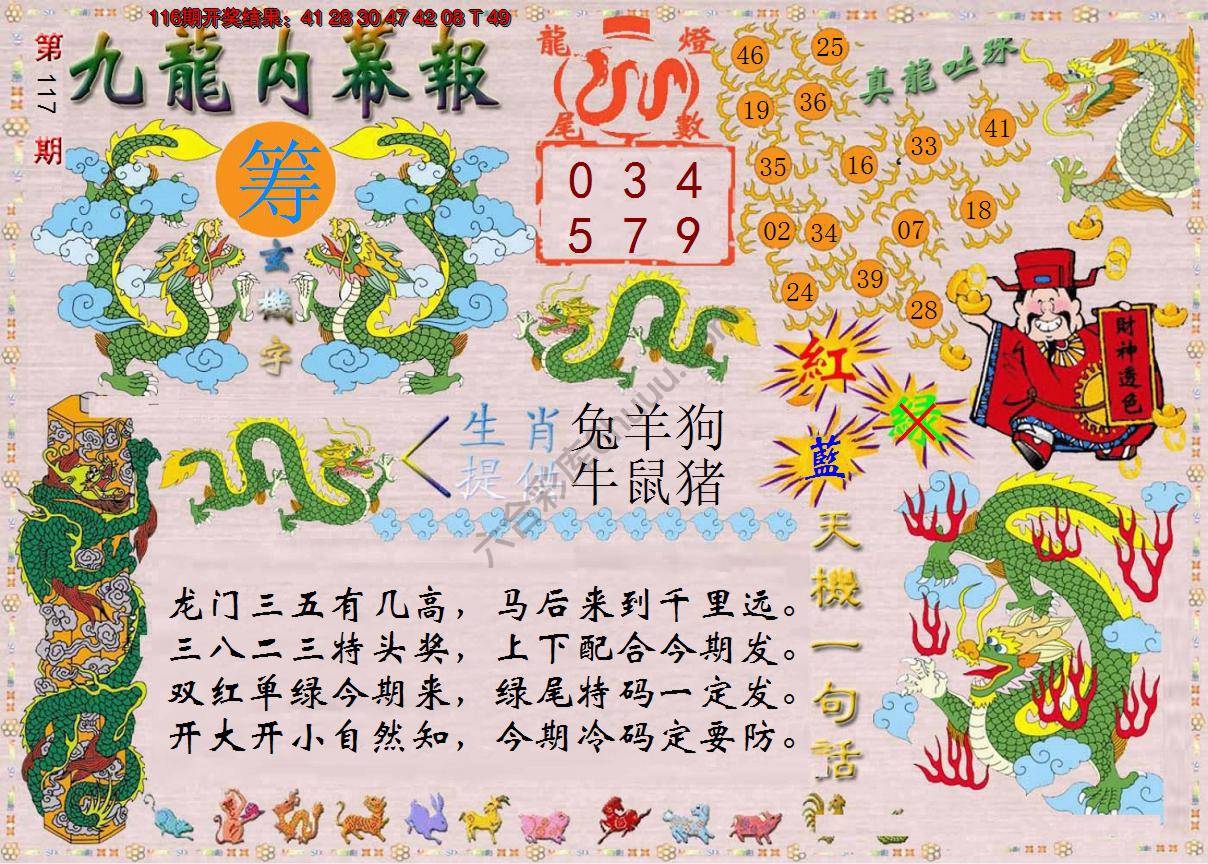 116期开奖结果：41 28 30 47 42 08 T 49
第117期
九龍内幕報
龍燈尾數
0 3 4
5 7 9
真龍吐珠
46 25
19 36
35 16 33 41
02 34 07 18
24 39 28
筹
玄機字
財神透色
紅
绿
藍
生肖提供
兔羊狗
牛鼠猪
天機一句話
龙门三五有几高，马后来到千里远。
三八二三特头奖，上下配合今期发。
双红单绿今期来，绿尾特码一定发。
开大开小自然知，今期冷码定要防。